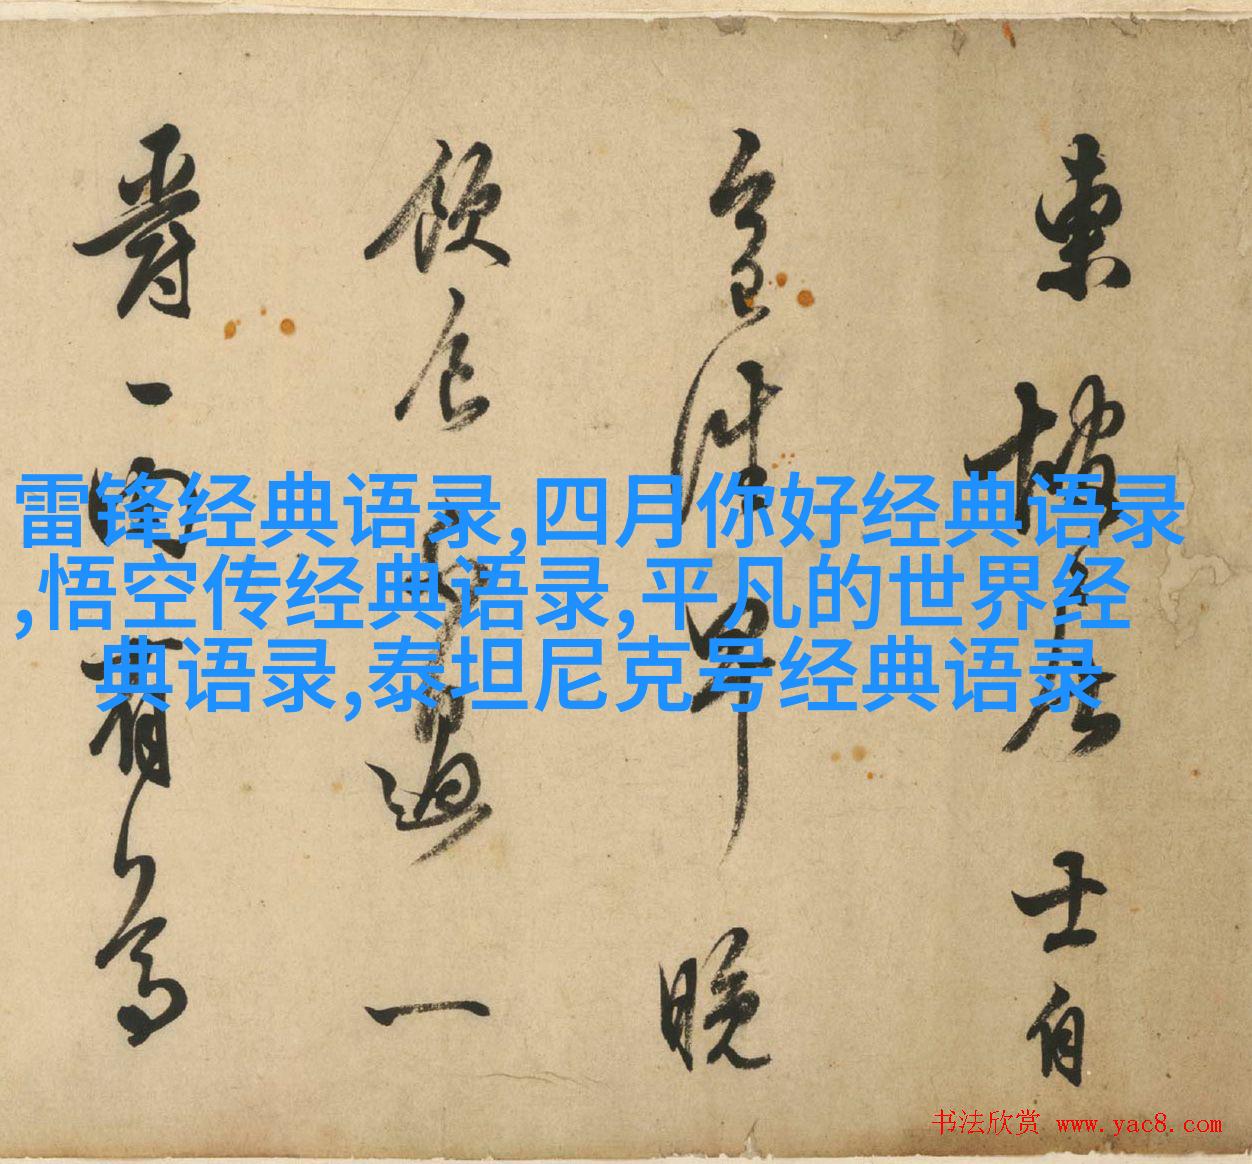 雷锋经典语录,四月你好经典语录
,悟空传经典语录,平凡的世界经
典语录,泰坦尼克号经典语录
東坡居士自
今日往早晚
飲食不過一
爵一肉有尊
书法欣赏 www.yac8.com